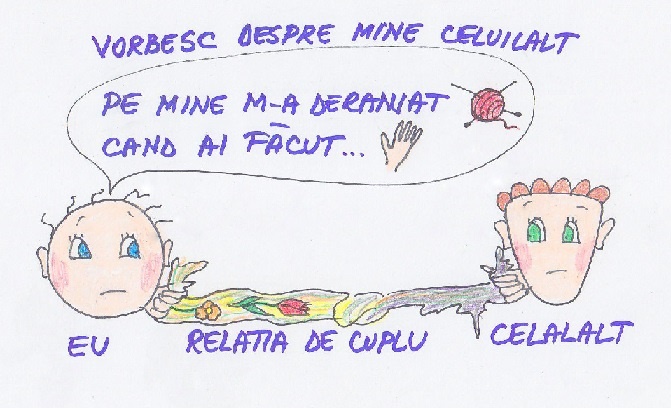 VORBESC DESPRE MINE CELUILALT
PE MINE M-A DERANJAT
CAND AI FĂCUT...
EU
RELATIA DE CUPLU
CELALALT